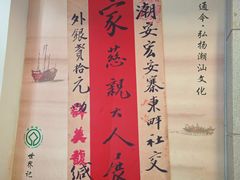 通今·弘扬潮汕文化
潮安宏安寨東畔社交
家慈親大人展
外銀貳拾元
緘
世界记